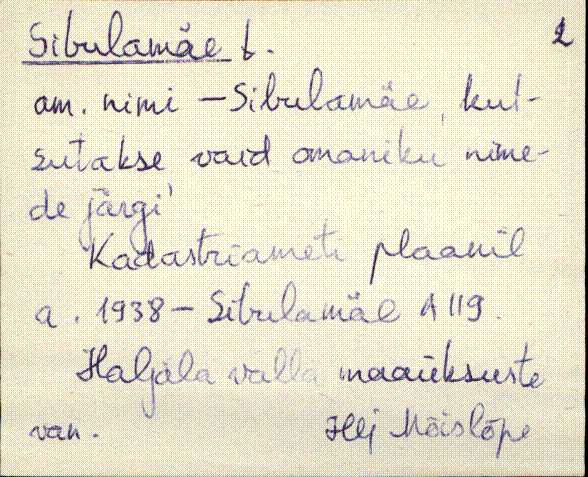 Sibulamäe t. 2
am. nimi – Sibulamäe, kut-
sutakse vaid omaniku nime-
de järgi
Kadastriameti plaanil
a. 1938 – Sibulamäe A 119.
Haljala valla maaüksuste
van. Hlj Mõislõpe